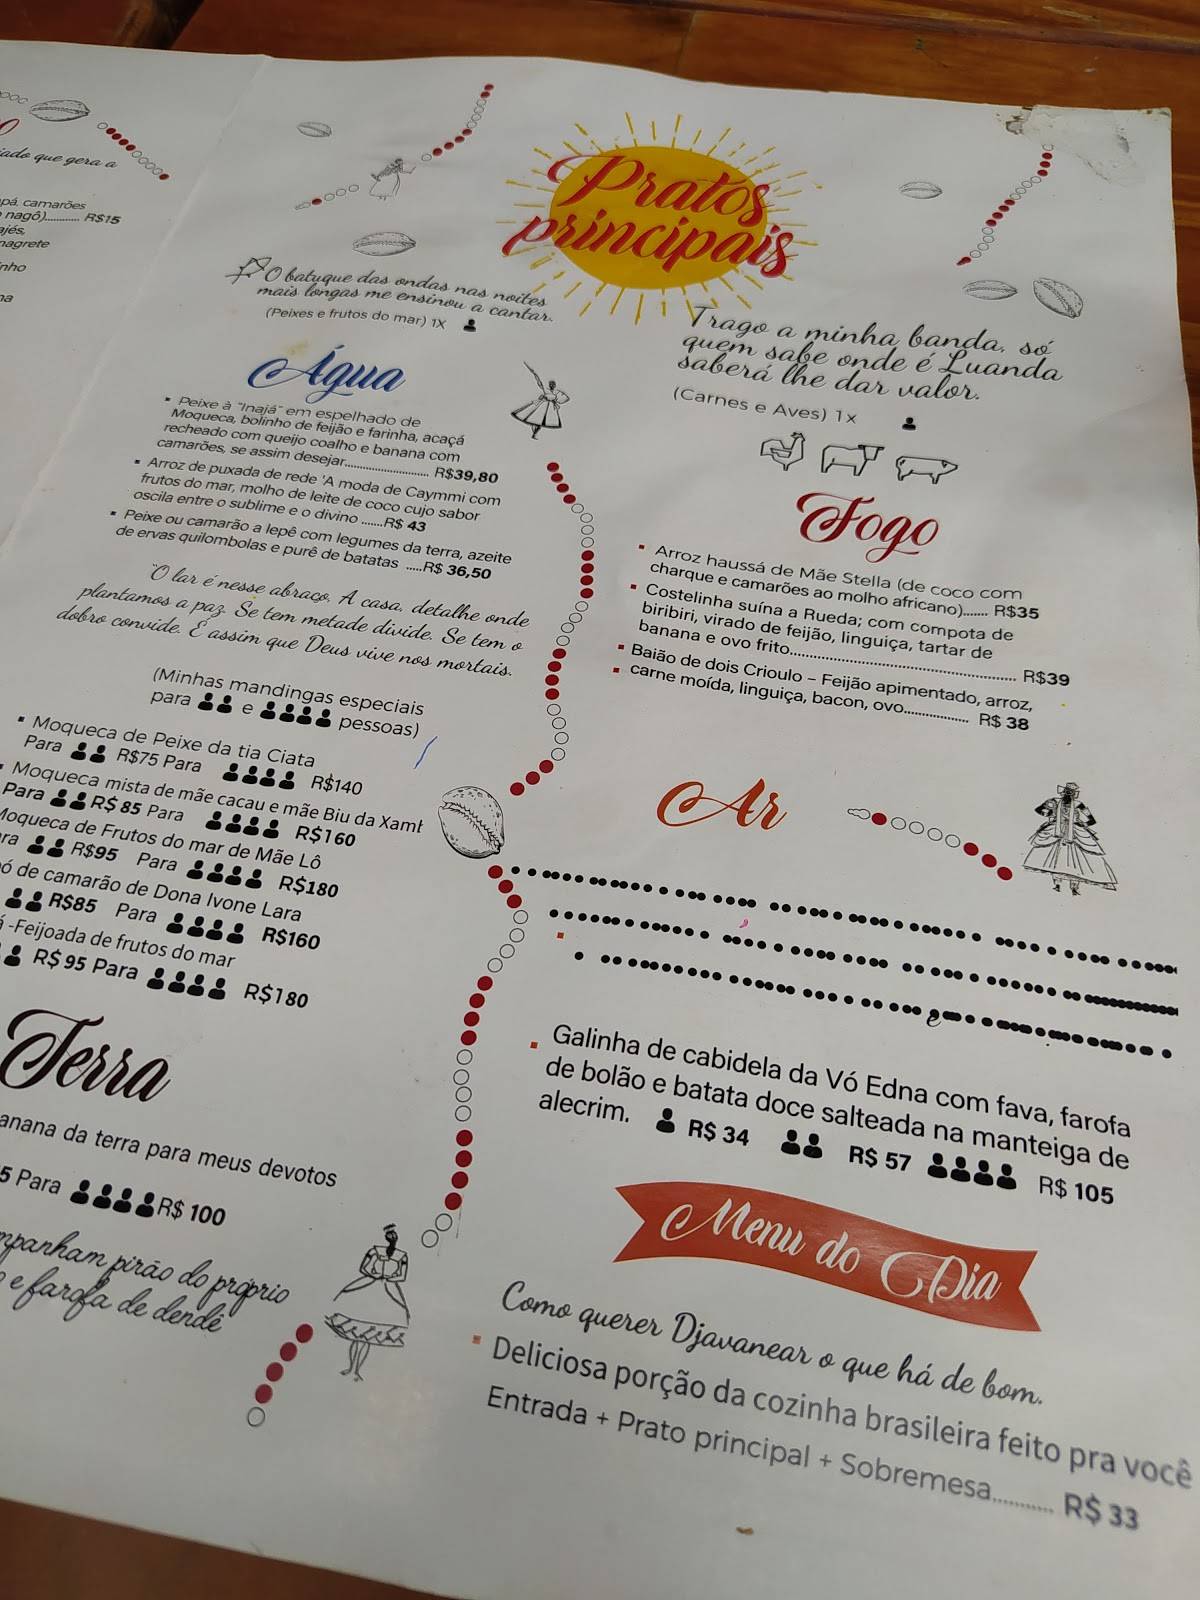 iado que gera a
pá, camarões
nagô)............ R$15
ajés,
nagrete
inho
na
Pratos
principais
"O batuque das ondas nas noites
mais longas me ensinou a cantar.
(Peixes e frutos do mar) 1X
Água
▪ Peixe à "Inajá" em espelhado de
Moqueca, bolinho de feijão e farinha, acaçá
recheado com queijo coalho e banana com
camarões, se assim desejar........................... R$39,80
▪ Arroz de puxada de rede 'A moda de Caymmi com
frutos do mar, molho de leite de coco cujo sabor
oscila entre o sublime e o divino .......R$ 43
▪ Peixe ou camarão a lepê com legumes da terra, azeite
de ervas quilombolas e purê de batatas .....R$ 36,50
"O lar é nesse abraço. A casa, detalhe onde
plantamos a paz. Se tem metade divide. Se tem o
dobro convide. É assim que Deus vive nos mortais.
(Minhas mandingas especiais
para e pessoas)
▪ Moqueca de Peixe da tia Ciata
Para R$75 Para R$140
▪ Moqueca mista de mãe cacau e mãe Biu da Xamb
Para R$ 85 Para R$160
Moqueca de Frutos do mar de Mãe Lô
ra R$95 Para R$180
ó de camarão de Dona Ivone Lara
R$85 Para R$160
á -Feijoada de frutos do mar
R$ 95 Para R$180
Terra
anana da terra para meus devotos
5 Para R$ 100
mpanham pirão do próprio
e farofa de dendê
Trago a minha banda, só
quem sabe onde é Luanda
saberá lhe dar valor.
(Carnes e Aves) 1x
Fogo
▪ Arroz haussá de Mãe Stella (de coco com
charque e camarões ao molho africano)...... R$35
▪ Costelinha suína a Rueda; com compota de
biribiri, virado de feijão, linguiça, tartar de
banana e ovo frito.................................................. R$39
▪ Baião de dois Crioulo – Feijão apimentado, arroz,
▪ carne moída, linguiça, bacon, ovo................. R$ 38
Ar
▪ Galinha de cabidela da Vó Edna com fava, farofa
de bolão e batata doce salteada na manteiga de
alecrim. R$ 34 R$ 57 R$ 105
Menu do Dia
Como querer Djavanear o que há de bom.
▪ Deliciosa porção da cozinha brasileira feito pra você
Entrada + Prato principal + Sobremesa........... R$ 33